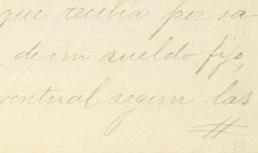 que recibia por sa
de un sueldo fijo,
eventual segun las